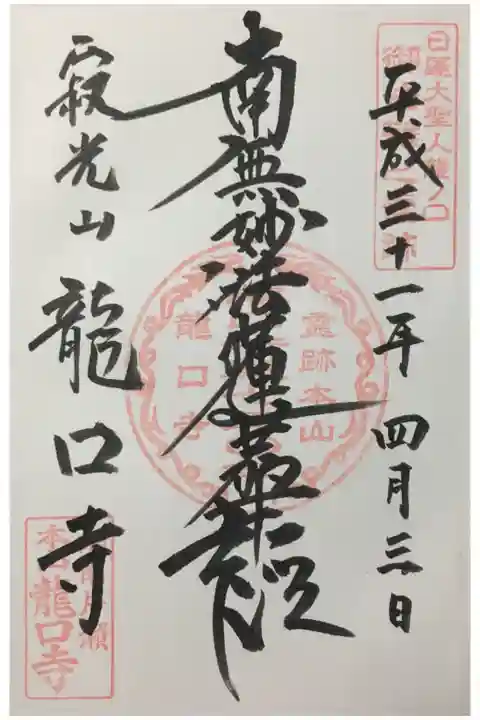 日蓮大聖人龍ノ口
平成三十一年 四月三日
南無妙法蓮華経
靈跡本山
龍口寺
寂光山 龍口寺
本山龍口寺